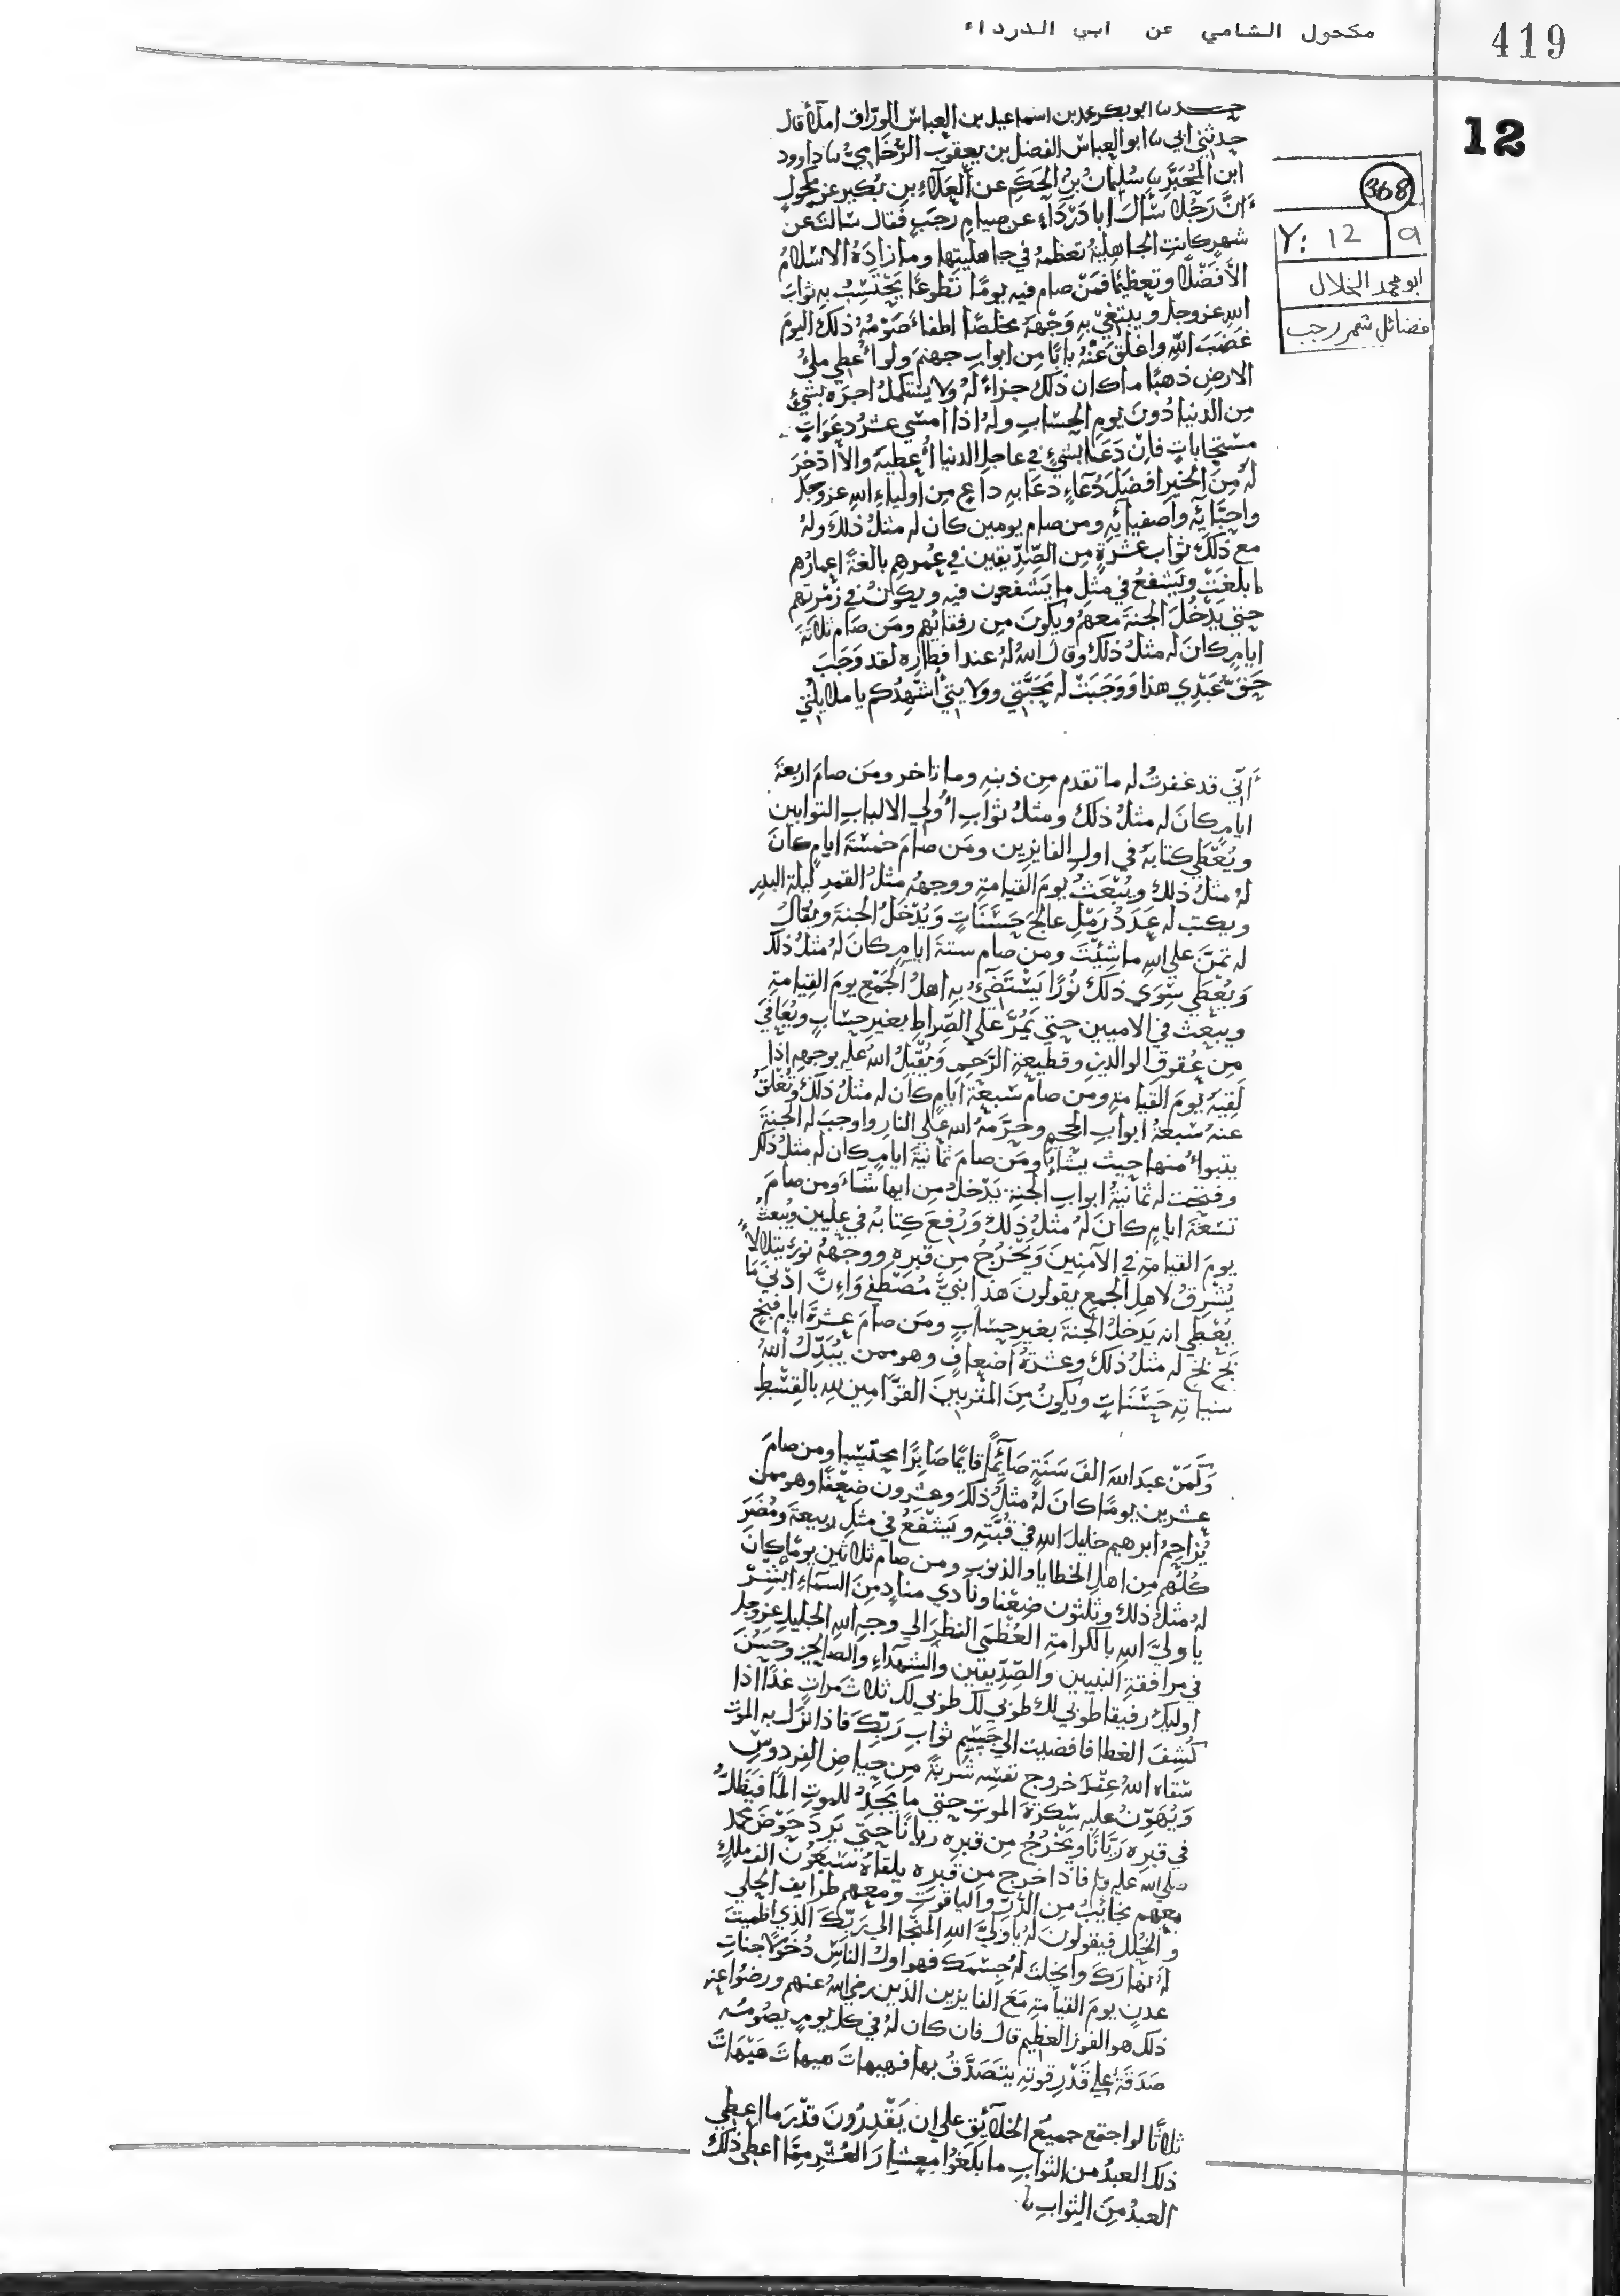 419
مكحول الشامي عن ابي الدرداء
12
368
Y: 12 9
ابو محمد الخلال
فضائل شهر رجب
حدثنا ابو بكر محمد بن اسماعيل بن العباس الورّاق املأً قال
حدثني ابي نا ابو العباس الفضل بن يعقوب الرُّخَامِيُّ نا داوود
ابن المُحَبَّر نا سُليمانُ بنُ الحَكَمِ عن العَلَاءِ بنِ بُكيرٍ عن مكحولٍ
اَنَّ رَجُلاً سَأَلَ ابا دَرْدَآءِ عن صيامِ رجَبٍ فقال سَالتَ عن
شهرٍ كانتِ الجاهليةُ تُعظمهُ في جاهليتِها وما زادَهُ الاسلامُ
الاّ فَضْلًا وتعظيمًا فمَنْ صام فيهِ يومًا تَطوعًا يَحْتَسِبُ بهِ ثوابَ
اللهِ عز وجل ويبتغي بهِ وَجْههُ مخلصًا اطفاءَ صَوْمُهُ ذلكَ اليومَ
غَضَبَ اللهِ واغلقَ عَنْهُ بابًا مِن ابوابِ جهنمَ ولو اُعْطِي ملئُ
الارضِ ذهبًا ما كان ذلكَ جزاءً لهُ ولا يستكملُ اجرَه بشيءٍ
مِن الدنيا دُونَ يومِ الحسَابِ ولهُ اذا امسَي عشرُ دعَوَاتٍ
مستجاباتٍ فاِنْ دَعَا بشيءٍ في عاجلِ الدنيا اُعطيهُ والاّ ادّخرَ
لهُ مِنَ الخيرِ افضلَ دُعآءٍ دعَا بهِ داعٍ مِن اولياءِ اللهِ عز وجل
واحبَّائِهِ واَصفيائِهِ ومن صام يومين كان له مثلُ ذلكَ ولهُ
مع ذلكَ ثوابُ عشَرَةٍ مِن الصِّدِّيقين في عُمرهِم بالغةً اعمارُهم
ما بلغَتْ ويَشفعُ في مثلِ ما يَشفعون فيه ويكونُ في زُمْرتهِم
حتي يَدْخُلَ الجنةَ معهُم ويكونَ مِن رفقائِهم ومَن صَام ثلاثةَ
ايامٍ كانَ له مثلُ ذلكَ وقالَ اللهُ لهُ عند افطارِه لقد وَجَبَ
حَقُّ عَبْدِي هذا وَوَجَبَتْ له مَحَبَّتي وولايتي اُشْهِدُكم يا ملايكتي
اَنّي قد غفرتُ له ما تقدم مِن ذنبهِ وما تاخر ومَن صامَ اربعةَ
ايامٍ كانَ له مثلُ ذلكَ ومثلُ ثوابِ اُولي الالبابِ التوابين
ويُعْطَي كتابَهُ في اولِ الفايزين ومَن صامَ خمسَةَ ايامٍ كانَ
لهُ مثلُ ذلكَ ويُبْعَثُ يومَ القيامةِ ووجههُ مثلُ القمرِ ليلةَ البدرِ
ويكتب له عَدَدُ رَمْلِ عالجٍ حَسَنَاتٍ وَيُدْخَلُ الجنةَ ويُقالُ
له تمنَّ علي اللهِ ما شِئْتَ ومن صام ستةَ ايامٍ كانَ لهُ مثلُ ذلكَ
وَيُعْطَي سِوَي ذلكَ نُورًا يَسْتَضِيءُ بهِ اهلُ الجَمْعِ يومَ القِيامةِ
ويبعث في الامنين حتي يَمُرَّ علي الصِّراطِ بغيرِ حسابٍ ويُعَافَي
مِن عُقوقِ الوالدينِ وقطيعةِ الرَّحِمِ ويُقْبِلُ اللهُ عليه بوجههِ اذا
لَقِيَهُ يومَ القيامةِ ومن صامَ سَبعَةَ ايامٍ كان له مثلُ ذلكَ وتُغْلَقُ
عنهُ سَبعةُ ابوابِ الجحيمِ وحَرَّمَهُ اللهُ علي النارِ واوجبَ له الجنةَ
يتبواُ منها حيث يشاءُ ومَن صامَ ثمانيةَ ايامٍ كان له مثلُ ذلكَ
وفتحت له ثمانيةُ ابوابِ الجنةِ يَدْخلُ مِن ايِها شآءَ ومن صامَ
تسعَةَ ايامٍ كانَ لهُ مثلُ ذلكَ وَرُفِعَ كِتابُه في عليين ويُبعثُ
يومَ القيامةِ في الآمنينَ وَيَخْرُجُ مِن قبرهِ ووجههُ نورٌ يتلالأُ
يُشْرِقُ لاهلِ الجمعِ يقولونَ هَذا نبيٌّ مُصْطَفيً وَاِنَّ ادْنَي مَا
يُعْطَي انه يَدخلُ الجنةَ بغيرِ حسابٍ ومَن صامَ عشرَةَ ايامٍ فبخٍ
بَخٍ بخٍ له مثلُ ذلكَ وعشرَةُ اضعافٍ وهو ممن يُبَدِّلُ اللهُ
سياتِهِ حَسَنَاتٍ ويكونُ مِنَ المقربينَ القوَّامين للهِ بالقِسْطِ
وَكَمَنْ عبدَ اللهَ الفَ سَنَةٍ صَآئِمًا قائمًا صَابرًا محتسِبا ومن صامَ
عشرين يومًا كانَ لهُ مثلُ ذلكَ وعشرون ضِعْفًا وهو ممن
يُزاحمُ ابرهيم خليلَ اللهِ في قُبَّتِهِ ويَشفَعُ في مثلِ ربيعةَ ومُضَرَ
كُلُّهم مِن اهلِ الخطايا والذنوبِ ومن صام ثلاثين يومًا كانَ
لهُ مثلُ ذلكَ وثلثون ضِعْفا ونادي منادٍ مِنَ السمآءِ ابْشِرْ
يا وليَّ اللهِ بالكرامةِ العُظْمَي النظرَ الي وجهِ اللهِ الجليلِ عز وجل
في مرافقةِ النبيين والصِّدِّيقين والشهدآءِ والصالحين وحَسُنَ
اوليكَ رفيقا طوبي لك طوبي لك طوبي لك ثلاثَ مَراتٍ غدًا اذا
كُشِفَ الغطا فافضيت الي جَسِيمِ ثوابِ رَبِّكَ فاذا نَزَلَ به الموت
سَقاه اللهُ عندَ خروجِ نفسِهِ شَربةً مِن حِياضِ الفِردوسِ
وَيُهَوِّنُ عليهِ سَكرةَ الموتِ حتي ما يَجِدُ للموتِ المًا فَيَظلُّ
في قبرهِ رَيَّانًا ويَخْرُجُ مِن قبرِه ريانًا حتي يَرِدَ حَوْضَ محمد
صلي الله عليه وسلم فاذا خرج مِن قبرِه يلقاهُ سَبعُونَ الفَ ملكٍ
معهم نجائبُ مِن الدُّرِّ والياقوتِ ومعهم طرايف الحُلي
والحُلل فيقولونَ لهُ يا وَليَّ اللهِ النجا الي رَبِّكَ الذي اظميتَ
لهُ نهارَكَ وانحلتَ لهُ جِسْمكَ فهو اولُ الناسِ دُخُولاً جناتِ
عدنٍ يومَ القيامةِ مَعَ الفايزين الذين رضي اللهُ عنهم ورضُوا عنه
ذلك هو الفوز العظيم قالَ فان كانَ لهُ في كل يومٍ يصُومُه
صَدَقةٌ علي قَدْرِ قوتهِ يتصَدَّقُ بها فهيهاتَ هيهاتَ هَيْهَاتَ
ثلاثًا لو اجتمع جميعُ الخلآئِقِ علي ان يَقْدِرُونَ قدْرَ ما اعطي
ذلكَ العبدُ من الثوابِ ما بَلَغُوا مِعشَارَ العُشْرِ مِمَّا اعطي ذلكَ
العبدُ مِنَ الثوابِ